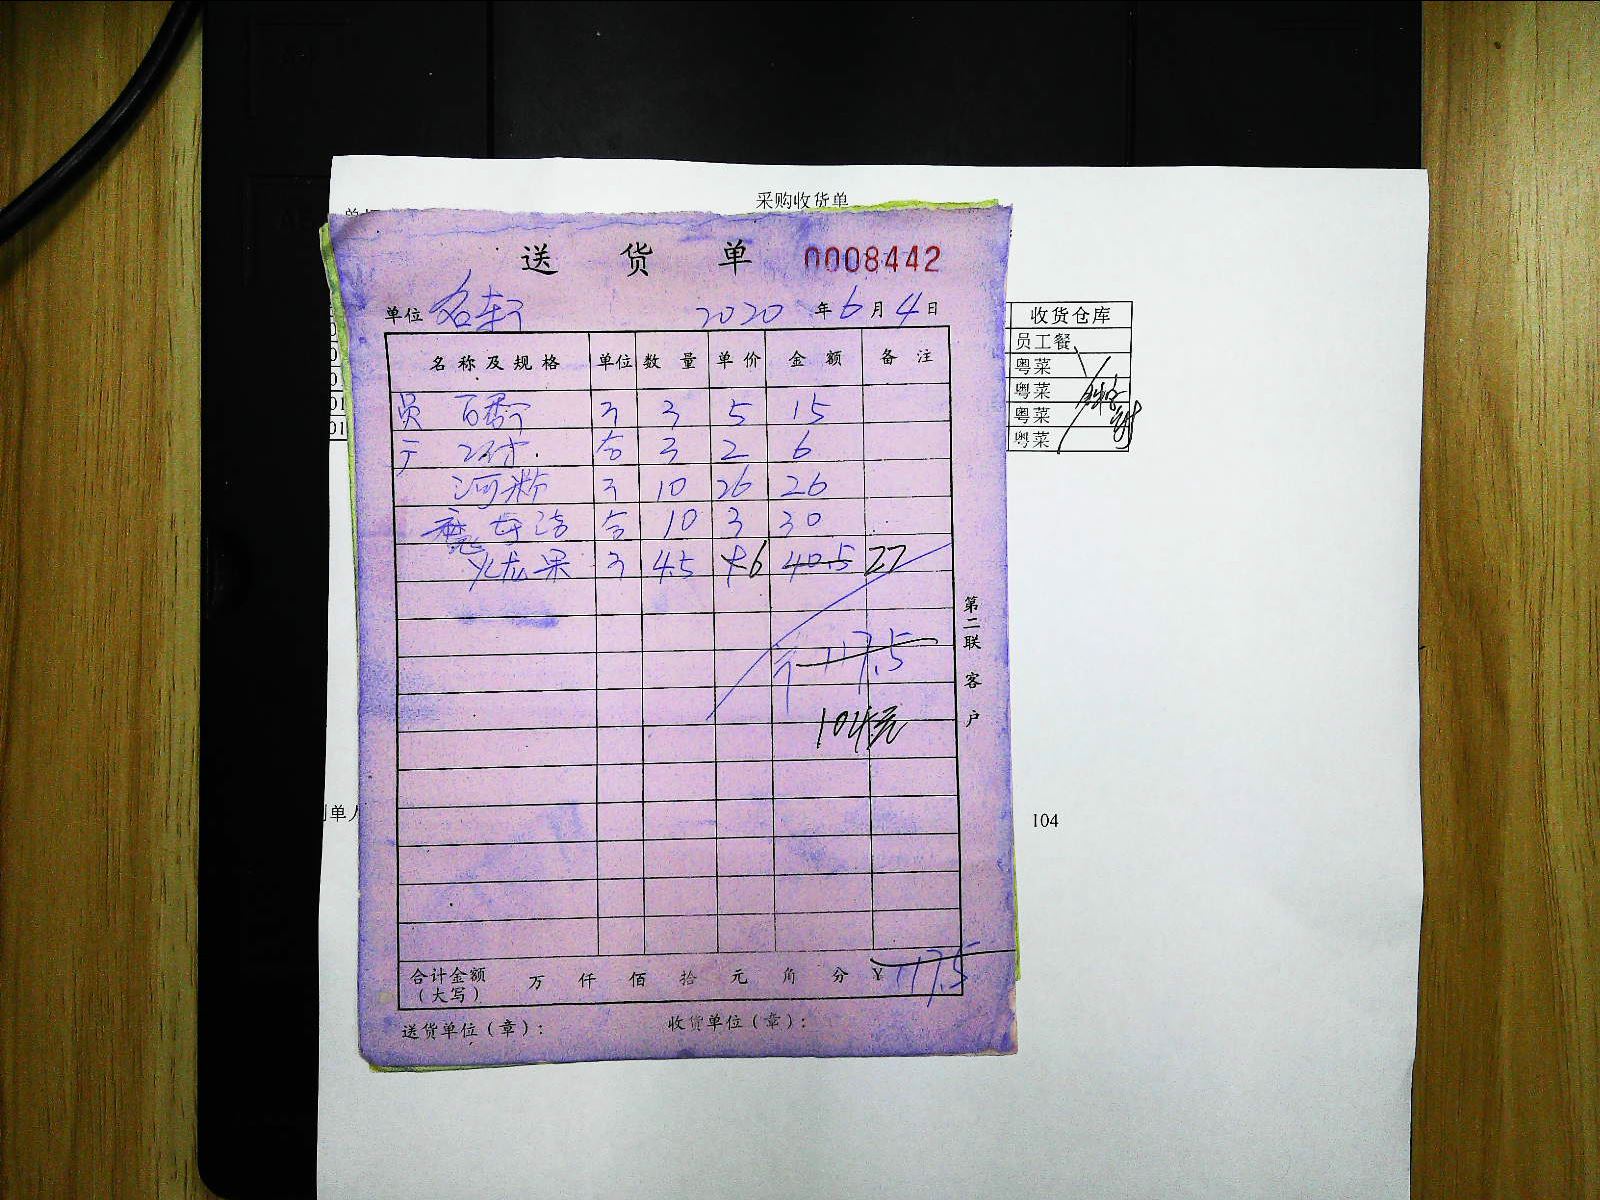 采购收货单
送货单 0008442
单位 名轩 2020 年 6 月 4 日
收货仓库
员工餐
粤菜
粤菜
粤菜
粤菜
名称及规格 单位 数量 单价 金额 备注
员 3 5 15
合 3 2 6
河粉 10 26 26
合 10 3 30
火龙果 4.5 6 40.5 27
117.5
104元
第二联 客户
制单人
104
合计金额（大写） 万 仟 佰 拾 元 角 分 ¥ 117.5
送货单位（章）： 收货单位（章）：